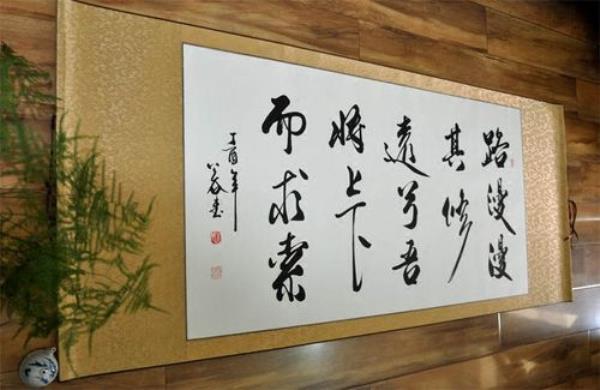 路漫漫
其修
遠兮吾
将上下
而求索
丁酉年
書